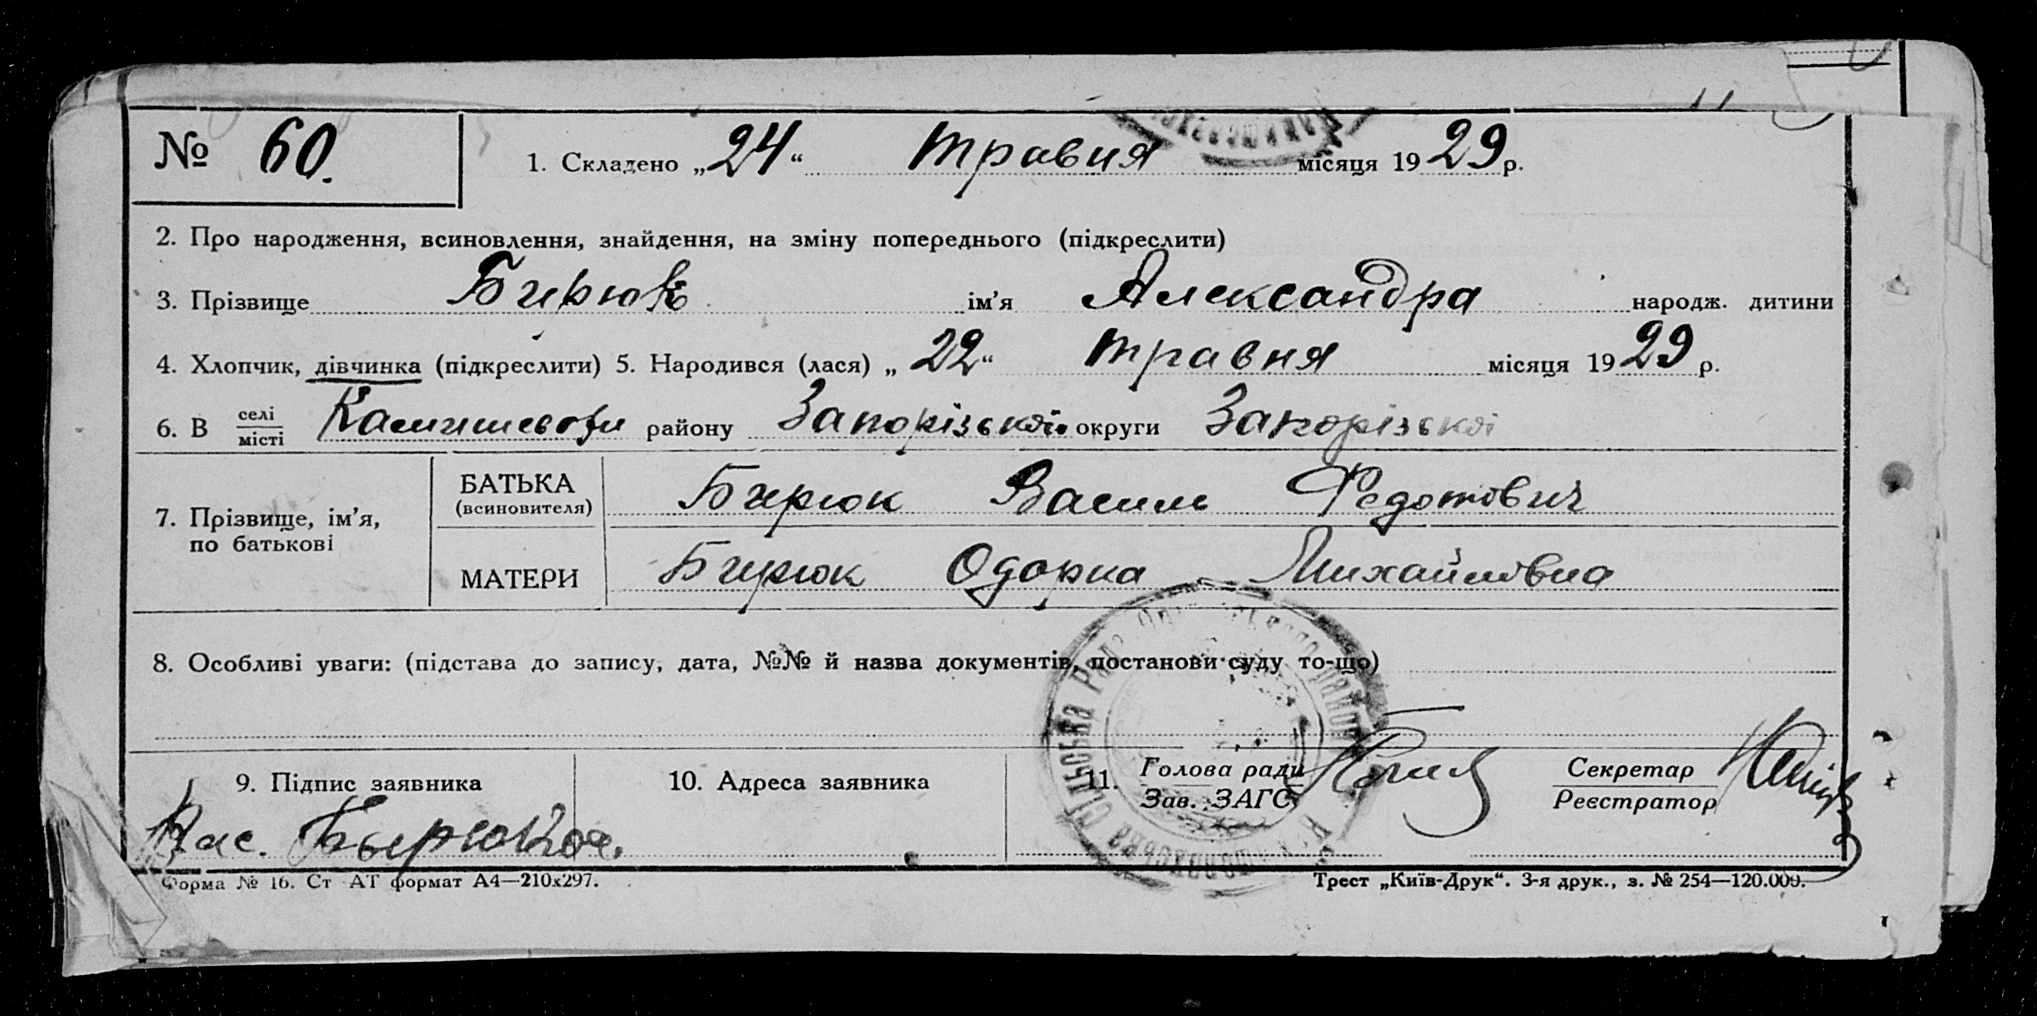 № 60. 1. Складено „24“ травня місяця 1929 р.
2. Про народження, всиновлення, знайдення, на зміну попереднього (підкреслити)
3. Прізвище Бирюк ім’я Александра народж. дитини
4. Хлопчик, дівчинка (підкреслити) 5. Народився (лася) „22“ травня місяця 1929 р.
6. В селі місті району Запорізької округи Запорізької
7. Прізвище, ім’я, по батькові
БАТЬКА (всиновителя) Бирюк Василь Федотович
МАТЕРИ Бирюк Одарка Михайловна
8. Особливі уваги: (підстава до запису, дата, №№ й назва документів, постанови суду то-що)
9. Підпис заявника 10. Адреса заявника 11. Голова ради Секретар
Зав. ЗАГС Реєстратор
Вас.
Форма № 16. Ст АТ формат А4—210х297. Трест „Київ-Друк“. 3-я друк., з. № 254—120.000.